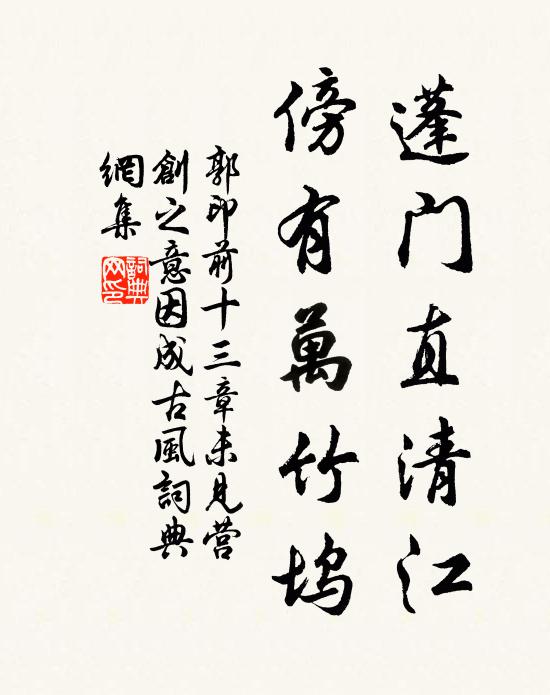 蓬門直清江
傍有萬竹塢
郭印前十三章未見營
創之意因成古風詞典
網集
詞典網印